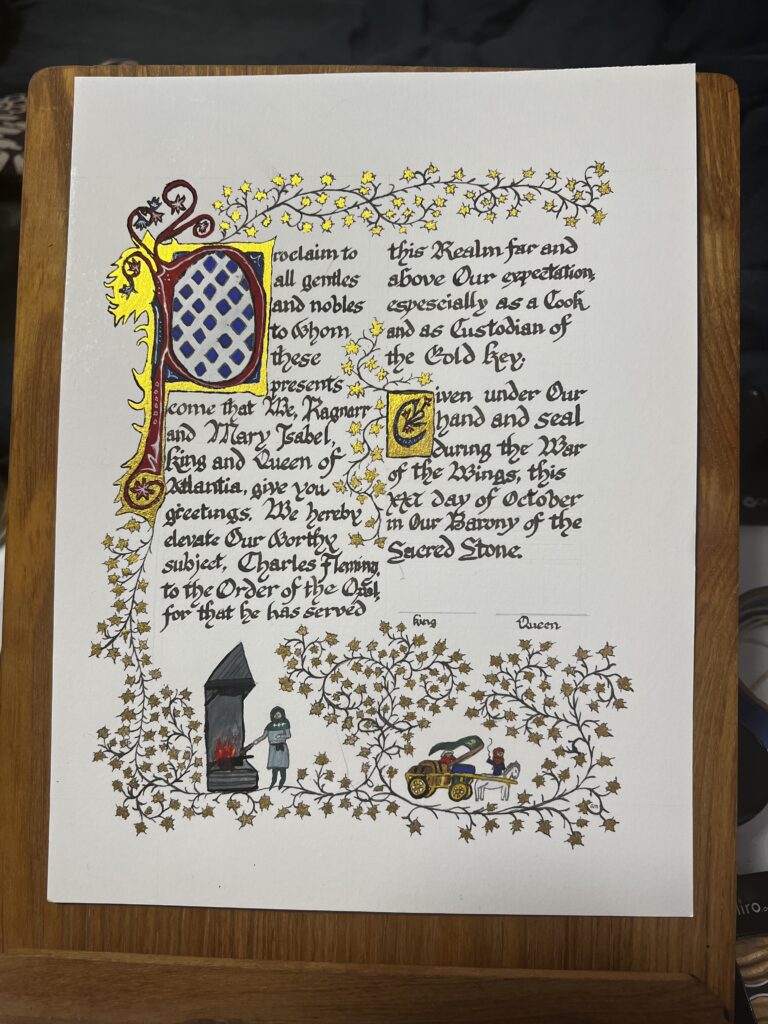 Proclaim to
all gentles
and nobles
to whom
these
presents
come that We, Ragnarr
and Mary Isabel,
King and Queen of
Atlantia, give you
greetings. We hereby
elevate Our worthy
subject, Charles Fleming,
to the Order of the Opal,
for that he has served
this Realm far and
above Our expectation,
espescially as a Cook
and as Custodian of
the Gold Key.
Given under Our
hand and seal
during the War
of the Wings, this
XXI day of October
in Our Barony of the
Sacred Stone.
King
Queen